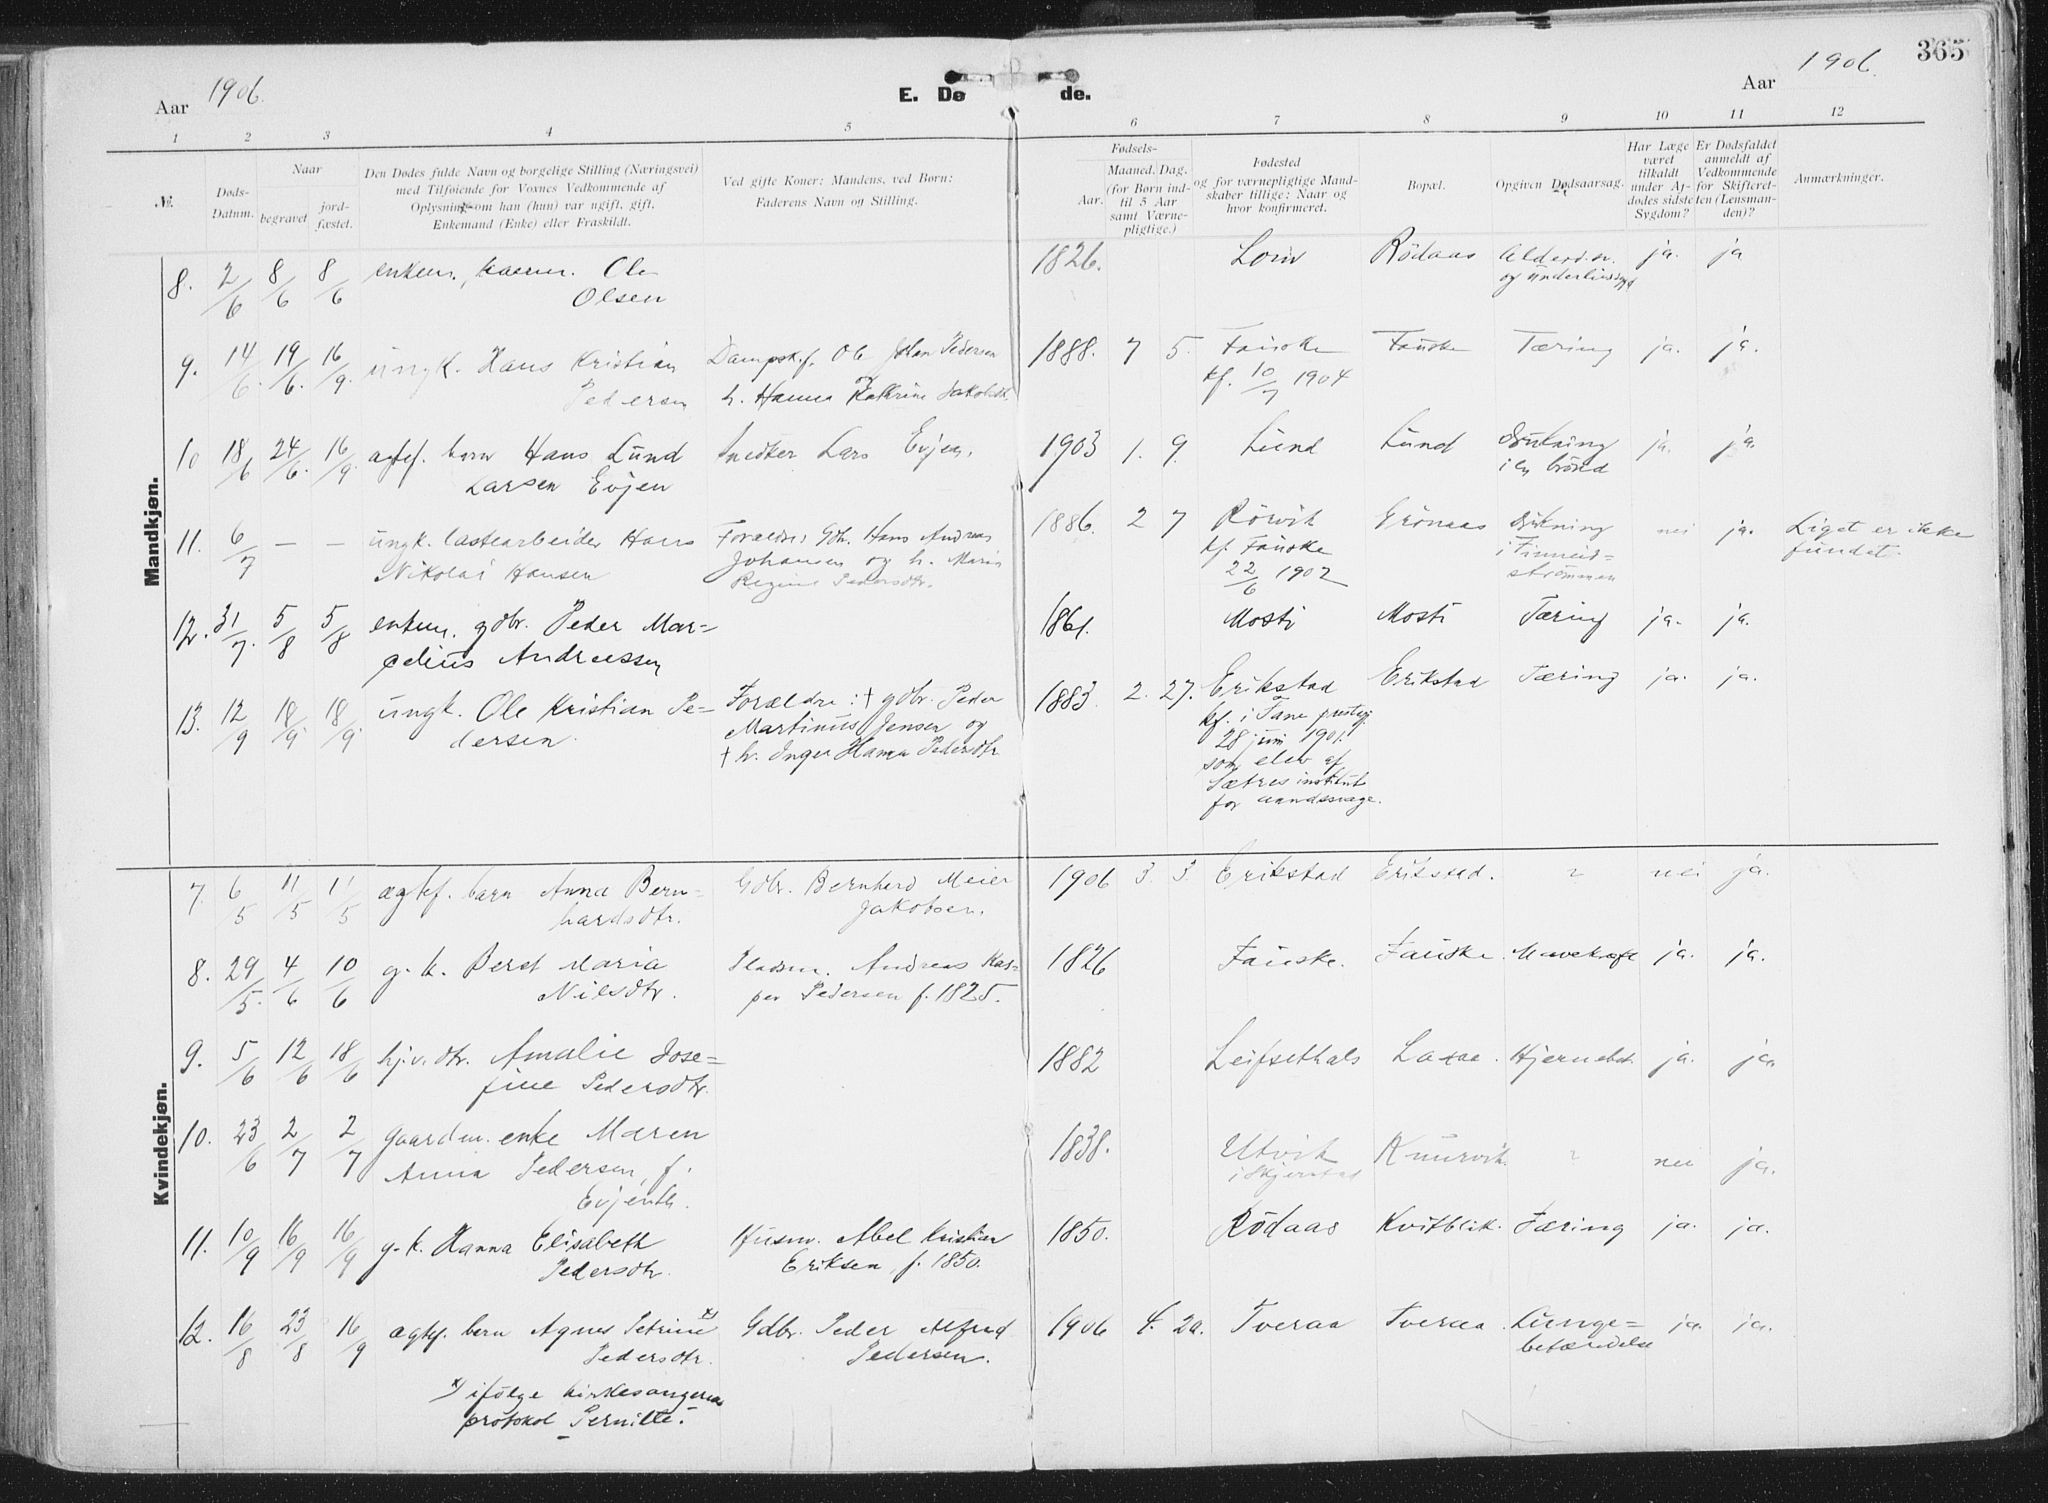 Aar 1906.
E. Dø de.
Aar 1906.
365
1 2 3 4 5 6 7 8 9 10 11 12
№.
Døds-
Datum.
Naar
begravet
jord-
fæstet.
Den Dødes fulde Navn og borgelige Stilling (Næringsvei)
med Tilføiende for Voxnes Vedkommende af
Oplysning om han (hun) var ugift, gift,
Enkemand (Enke) eller Fraskildt.
Ved gifte Koner: Mandens, ved Børn:
Faderens Navn og Stilling.
Fødsels-
Aar.
Maaned. Dag.
(for Børn ind-
til 5 Aar
samt Værne-
pligtige.)
Fødested
og for værnepligtige Mand-
skaber tillige: Naar og
hvor konfirmeret.
Bopæl.
Opgiven Dødsaarsag.
Har Læge
været
tilkaldt
under Af-
dødes sidste
Sygdom?
Er Dødsfaldet
anmeldt af
Vedkommende
for Skifteret-
ten (Lensman-
den)?
Anmærkninger.
Mandkjøn.
8. 2/6 8/6 8/6 enkem. Ole
Olsen
1826. Rödaas ja. ja
9. 14/6. 19/6. 16/9. ungk. Hans Kristian
Pedersen
Dampsk.f. Ole Johan Pedersen
og
h. Hanna Kathrine Jakobsdt.
1888. 7 5. Fauske
kf. 10/7 1904
Fauske Tæring ja. ja.
10 18/6 24/6. 16/9. ægtef. barn Hans Lund
Larsen Evjen
Snedker Lars Evjen.
1903 1. 9. Lund Lund Drukning
i en brönd
ja. ja.
11. 6/7 — — ungk. lastearbeider Hans
Nikolai Hansen
Forældre: Gdb. Hans Andreas
Johansen og h. Maria
Regine Pedersdtr.
1886. 2 7 Rörvik
kf. Fauske
22/6 1902
Grönaas Drukning
i Finneid-
strömmen
nei ja. Liget er ikke
fundet.
12. 31/7. 5/8 5/8 enkem. gdbr. Peder Mar-
selius Andreassen
1861. Mosti Mosti Tæring ja. ja.
13. 12/9 18/9. 18/9. ungk. Ole Kristian Pe-
dersen.
Forældre: † gdbr. Peder
Martinus Jensen og
† h. Inger Hanna Pedersdtr
1883. 2. 27. Erikstad
kf. i Fane prestegj.
28 juni 1901.
som elev af
Sætres institut
for aandssvage.
Erikstad Tæring ja. ja.
Kvindekjøn.
7. 6/5 11/5 11/5 ægtef. barn Anna Bern-
hardsdtr.
Gdbr. Bernhard Meier
Jakobsen.
1906 3. 3. Erikstad Erikstad. ? nei ja.
8. 29/5. 4/6 10/6 g. k. Beret Maria
Nilsdtr.
Pladsm. Andreas Kas-
per Pedersen f. 1825.
1826 Fauske. Fauske. Mavekræft ja. ja.
9. 5/6 12/6 18/6 hj.v. dtr. Amalie Jose-
fine Pedersdtr.
1882 Leifsethals Laxaa. Hjernebet. ja. ja.
10. 23/6 2/7 2/7 gaardm. enke Maren
Anna Pedersen, f.
Evjenth.
1838. Utvik
i Skjerstad
? nei ja.
11. 10/9 16/9 16/9 g. k. Hanna Elisabeth
Pedersdtr.
Husm. Abel Kristian
Eriksen, f. 1850.
1850. Rödaas Kvitblik. Tæring ja. ja.
12. 16/8 23/8 16/9 ægtef. barn Agnes Petrine x)
Pedersdtr.
Gdbr. Peder Alfred
Pedersen.
1906 4. 20. Tveraa Tveraa. Lunge-
betændelse
ja. ja.
x) ifölge kirkesangerens
protokol Pernille.